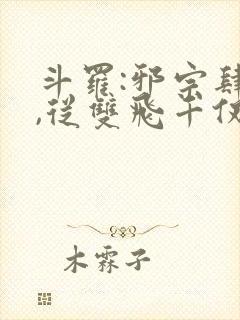 斗羅:邪宗肆
,從雙飛千仞
木霖子